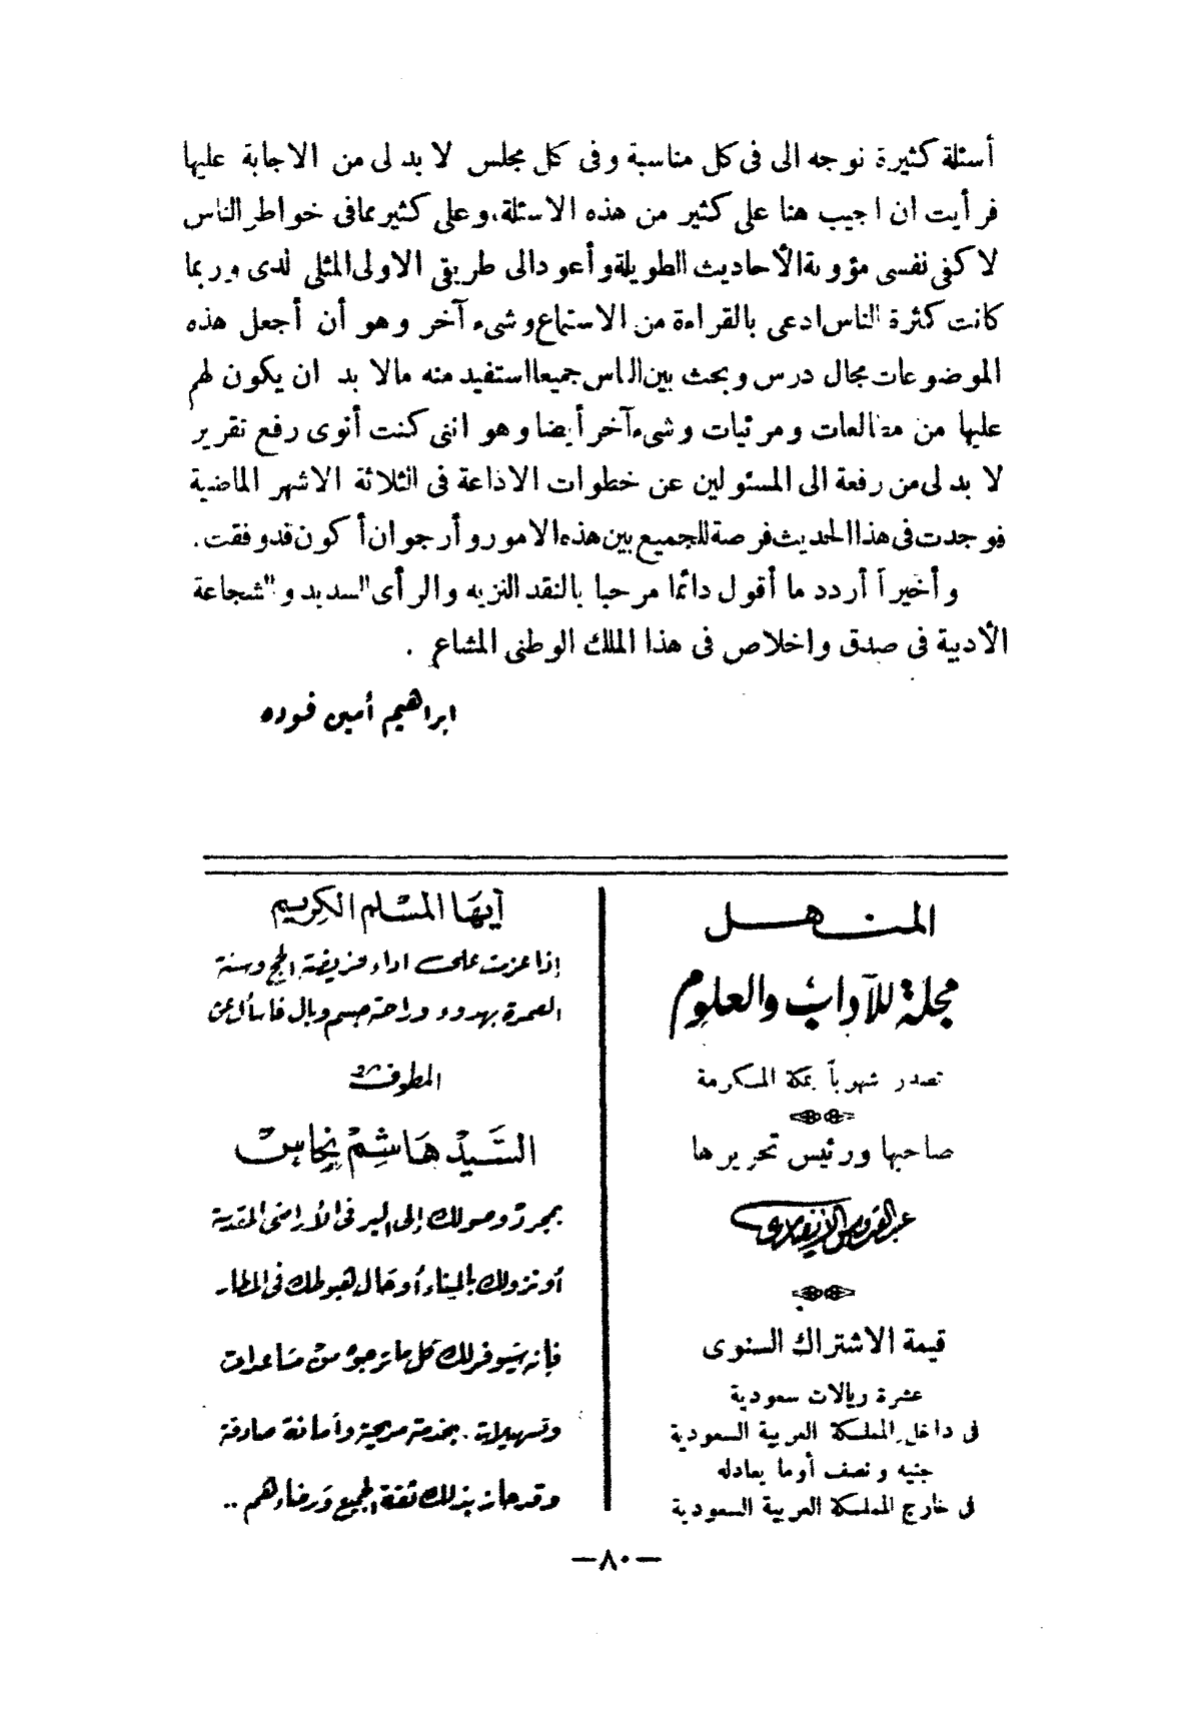 أسئلة كثيرة توجه الى فى كل مناسبة وفى كل مجلس لا بد لى من الاجابة عليها
فرأيت ان اجيب هنا على كثير من هذه الاسئلة، وعلى كثير مما فى خواطر الناس
لا كفى نفسى مؤونة الأحاديث الطويلة وأعود الى طريقى الاولى المثلى لدى وربما
كانت كثرة الناس ادعى بالقراءة من الاستماع وشىء آخر وهو أن أجعل هذه
الموضوعات مجال درس وبحث بين الناس جميعا استفيد منه مالا بد ان يكون لهم
عليها من مطالعات ومرئيات وشىء آخر أيضا وهو اننى كنت أنوى رفع تقرير
لا بد لى من رفعة الى المسئولين عن خطوات الاذاعة فى الثلاثة الاشهر الماضية
فوجدت فى هذا الحديث فرصة للجميع بين هذه الامور وأرجو ان أكون قد وفقت .
وأخيراً أردد ما أقول دائما مرحبا بالنقد النزيه والرأى السديد والشجاعة
الأدبية فى صدق واخلاص فى هذا الملك الوطنى المشاع .
ابراهيم أمين فوده
المنهل
مجلة للآداب والعلوم
تصدر شهرياً بمكة المكرمة
صاحبها ورئيس تحريرها
عبد القدوس الأنصارى
قيمة الاشتراك السنوى
عشرة ريالات سعودية
فى داخل المملكة العربية السعودية
جنيه ونصف أو ما يعادله
فى خارج المملكة العربية السعودية
أيها المسلم الكريم
إذا عزمت على اداء فريضة الحج وسنة
العمرة بهدوء وراحة جسم وبال فاسأل عن
المطوف
السيد هاشم نحاس
بمجرد وصولك إلى البر فى الأراضى المقدسة
أو نزولك بالميناء أو حال هبوطك فى المطار
فإنه سيوفر لك كل ما ترجوه من مساعدات
وتسهيلات . بخدمة مريحة وأمانة صادقة
وقد حاز بذلك ثقة الجميع ورضاءهم ..
—٨٠—